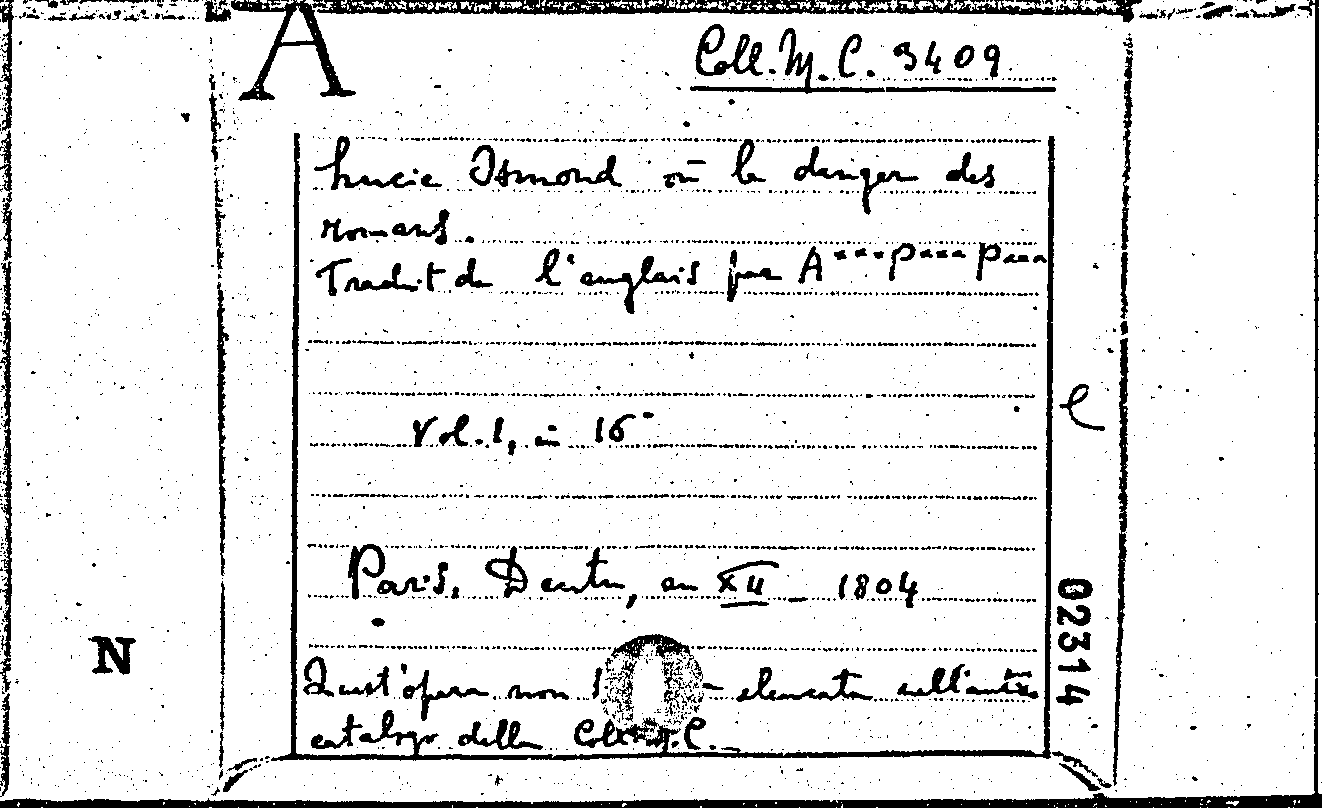 A
Coll. M. C. 3409
Lucie Osmond ou le danger des
romans.
Traduit de l'anglais par A*** P*** P***
Vol. 1, in 16°
e
Paris, Dentu, an XII _ 1804
02314
N
Quest'opera non elencata nell'antico
catalogo della Coll. M. C.